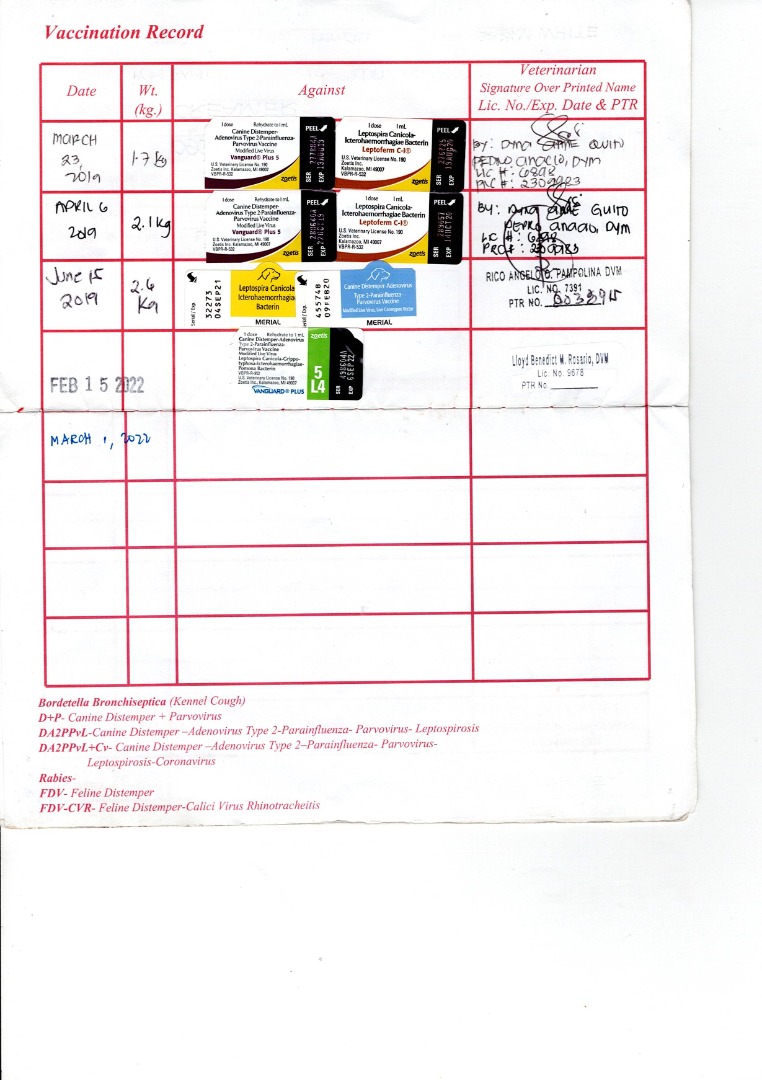 Vaccination Record
Date
Wt.
(kg.)
Against
Veterinarian
Signature Over Printed Name
Lic. No./Exp. Date & PTR
MARCH
23,
2019
1.7 kg
1 dose Rehydrate to 1 mL
Canine Distemper-
Adenovirus Type 2-Parainfluenza-
Parvovirus Vaccine
Modified Live Virus
Vanguard® Plus 5
U.S. Veterinary License No. 190
Zoetis Inc. Kalamazoo, MI 49007
VBPR-R-532
zoetis
PEEL
SER
EXP
1 dose 1mL
Leptospira Canicola-
Icterohaemorrhagiae Bacterin
Leptoferm C-I®
U.S. Veterinary License No. 190
Zoetis Inc.
Kalamazoo, MI 49007
VBPR-R-532
zoetis
PEEL
SER
EXP
By:
PEDRO
DVM
LIC #: 6898
APRIL 6
2019
2.1 kg
1 dose Rehydrate to 1 mL
Canine Distemper-
Adenovirus Type 2-Parainfluenza-
Parvovirus Vaccine
Modified Live Virus
Vanguard® Plus 5
U.S. Veterinary License No. 190
Zoetis Inc. Kalamazoo, MI 49007
VBPR-R-532
zoetis
PEEL
SER
EXP
1 dose 1mL
Leptospira Canicola-
Icterohaemorrhagiae Bacterin
Leptoferm C-I®
U.S. Veterinary License No. 190
Zoetis Inc.
Kalamazoo, MI 49007
VBPR-R-532
zoetis
PEEL
SER
EXP
BY:
PEDRO
DVM
June 15
2019
2.6
Kg
Serial / Exp.
32273
04SEP21
Leptospira Canicola
Icterohaemorrhagia
Bacterin
MERIAL
Serial / Exp.
45574B
09FEB20
Canine Distemper-Adenovirus
Type 2-Parainfluenza-
Parvovirus Vaccine
Modified Live Virus, Live Canarypox Vector
MERIAL
RICO ANGELO PAMPOLINA DVM
LIC. NO. 7391
PTR NO.
FEB 15 2022
1 dose Rehydrate to 1 mL
Canine Distemper-Adenovirus
Type 2-Parainfluenza-
Parvovirus Vaccine
Modified Live Virus
Leptospira Canicola-Grippo-
typhosa-Icterohaemorrhagiae-
Pomona Bacterin
U.S. Veterinary License No. 190
Zoetis Inc. Kalamazoo, MI 49007
VANGUARD® PLUS
5
L4
SER
EXP
Lloyd Benedict M. Rosario, DVM
Lic. No. 9678
PTR No.
MARCH 1, 2022
Bordetella Bronchiseptica (Kennel Cough)
D+P- Canine Distemper + Parvovirus
DA2PPvL-Canine Distemper –Adenovirus Type 2-Parainfluenza- Parvovirus- Leptospirosis
DA2PPvL+Cv- Canine Distemper –Adenovirus Type 2–Parainfluenza- Parvovirus-
Leptospirosis-Coronavirus
Rabies-
FDV- Feline Distemper
FDV-CVR- Feline Distemper-Calici Virus Rhinotracheitis